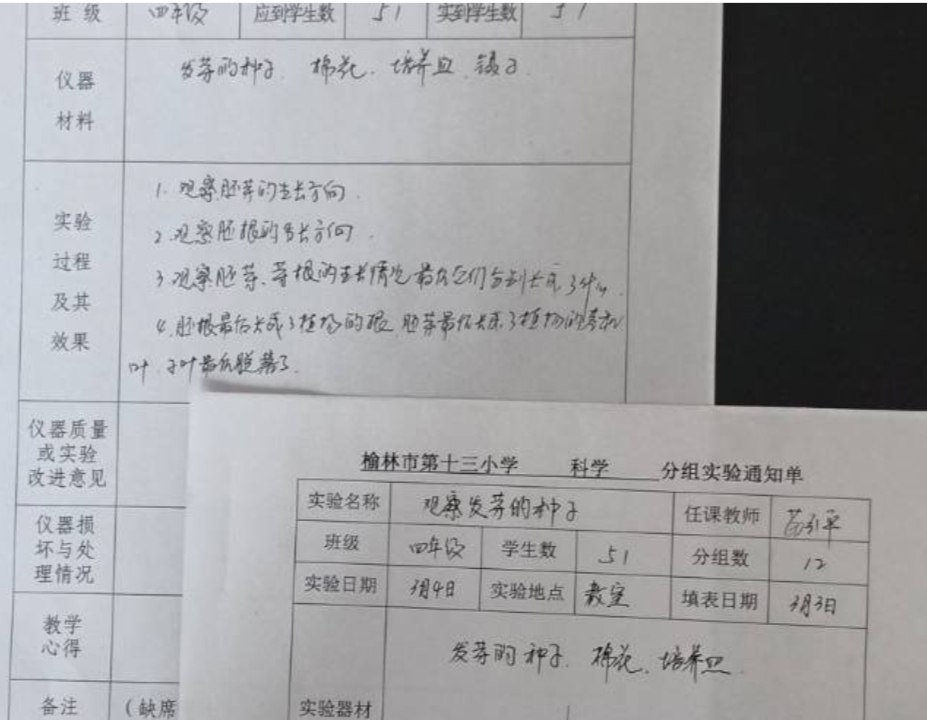 班级 四年级 应到学生数 51 实到学生数 51
仪器材料 发芽的种子、棉花、培养皿、镊子.
实验过程及其效果
1. 观察胚芽的生长方向.
2. 观察胚根的生长方向.
3. 观察胚芽、芽根的生长情况 最后它们分别长成了什么.
4. 胚根最后长成了植物的根, 胚芽最后长成了植物的茎和
叶. 子叶最后脱落了.
仪器质量或实验改进意见
仪器损坏与处理情况
教学心得
备注 (缺席
榆林市第十三小学 科学 分组实验通知单
实验名称 观察发芽的种子 任课教师
班级 四年级 学生数 51 分组数 12
实验日期 3月4日 实验地点 教室 填表日期 3月3日
实验器材 发芽的种子、棉花、培养皿.